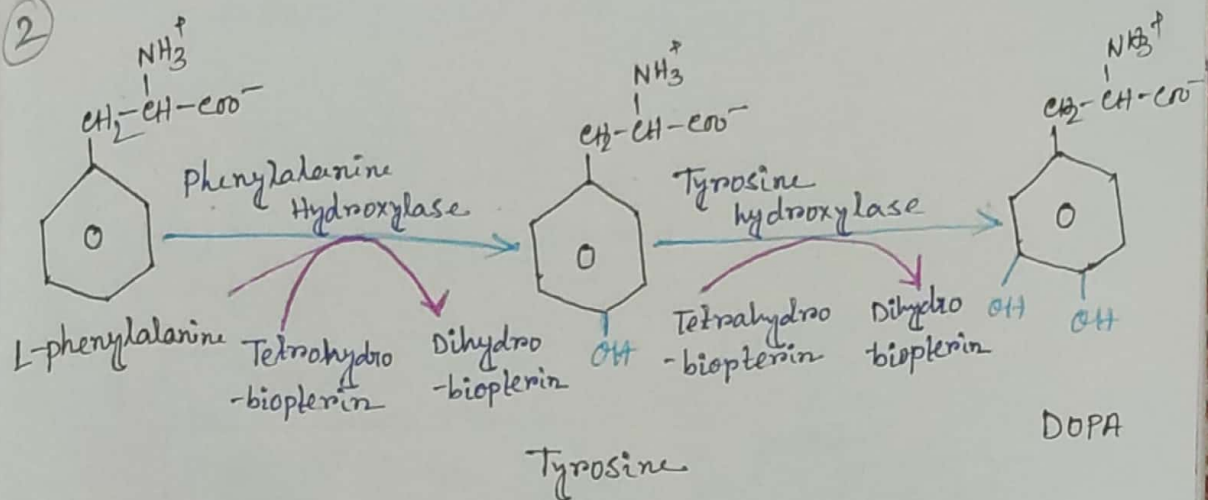 2
NH3+
CH2-CH-COO-
Phenylalanine
Hydroxylase
L-phenylalanine
Tetrahydro
-biopterin
Dihydro
-biopterin
NH3+
CH2-CH-COO-
OH
Tyrosine
Tyrosine
hydroxylase
Tetrahydro
-biopterin
Dihydro
-biopterin
NH3+
CH2-CH-COO-
OH
OH
DOPA